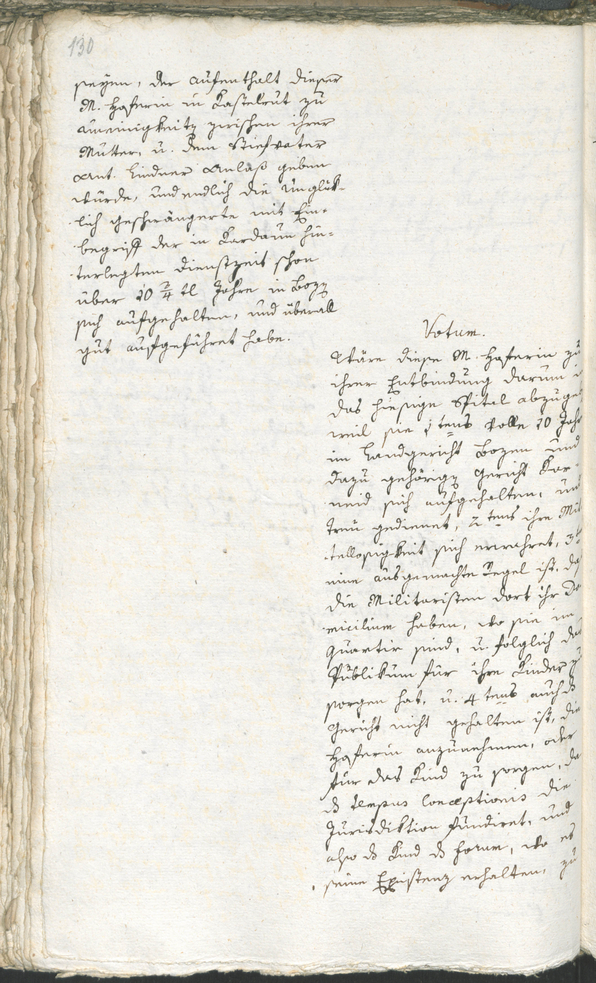 130
seyen, der Aufenthalt dieser
M. Haserin in Kastelrut zu
Uneinigkeitz zwischen ihrer
Mutter, u. dem Stiefvater
Ant. Lindner Anlaß geben
würde, und endlich die unglük-
lich geschwängerte mit Ein-
begriff der in Kardaun hin-
terlegten Dienstzeit schon
über 10 2/4 tl Jahre in Boz
sich aufgehalten, und überall
gut aufgeführet habe.
Votum.
Wäre diese M. Haserin zu
ihrer Entbindung darum in
das hiesige Spital abzugeben
weil sie 1tens volle 10 Jahr
im Landgericht Bozen und
dazu gehörigen Gericht Kar-
neid sich aufgehalten, und
treu gedienet, 2tens ihre Mit-
tellosigkeit sich erwahret, 3t
eine ausgemachte Regel ist, daß
die Militaristen dort ihr Do-
micilium haben, wo sie im
Quartir sind, u. folglich das
Publikum für ihre Kinder zu
sorgen hat, u. 4tens auch ds
Gericht nicht gehalten ist, die
Haserin anzunehmen, oder
für das Kind zu sorgen, da
ds tempus Conceptionis die
Jurisdiktion fundiret, und
also ds Kind ds forum, wo es
seine Existenz erhalten, zu